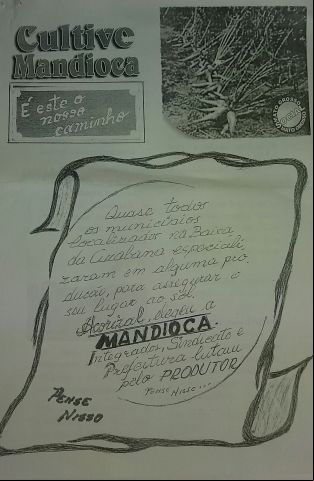 Cultive
Mandioca
É este o
nosso
caminho
Quase todos
os municípios
localizados na Baixa
da Cuiabana especiali
zaram em alguma pro
ducao, para assegurar o
seu lugar ao sol.
Acorizal, elegeu a
MANDIOCA.
Integrados, Sindicato e
Prefeitura lutam
pelo PRODUTOR
PENSE NISSO...
PENSE
NISSO